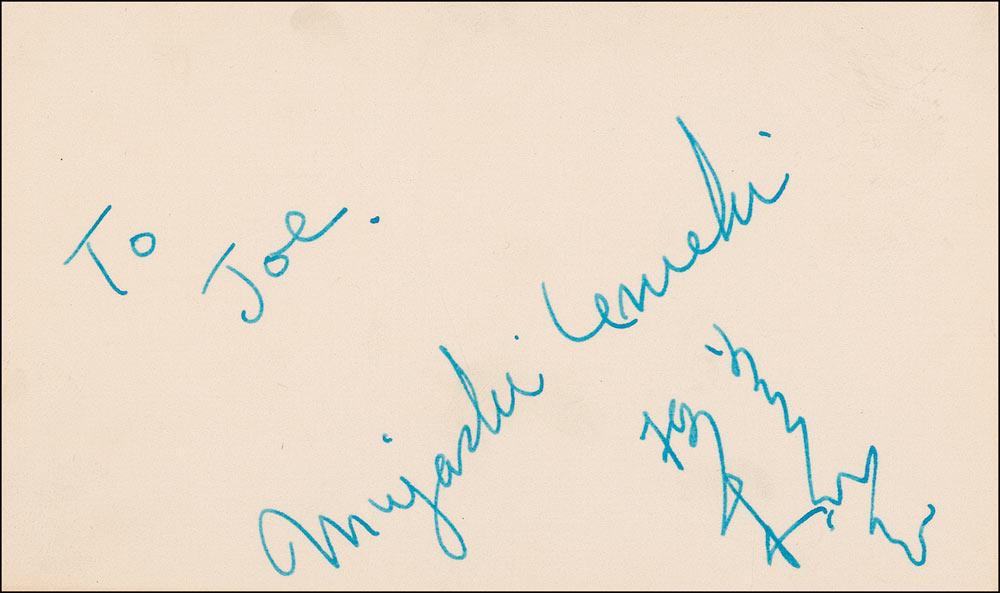 To Joe.
Miyoshi Umeki